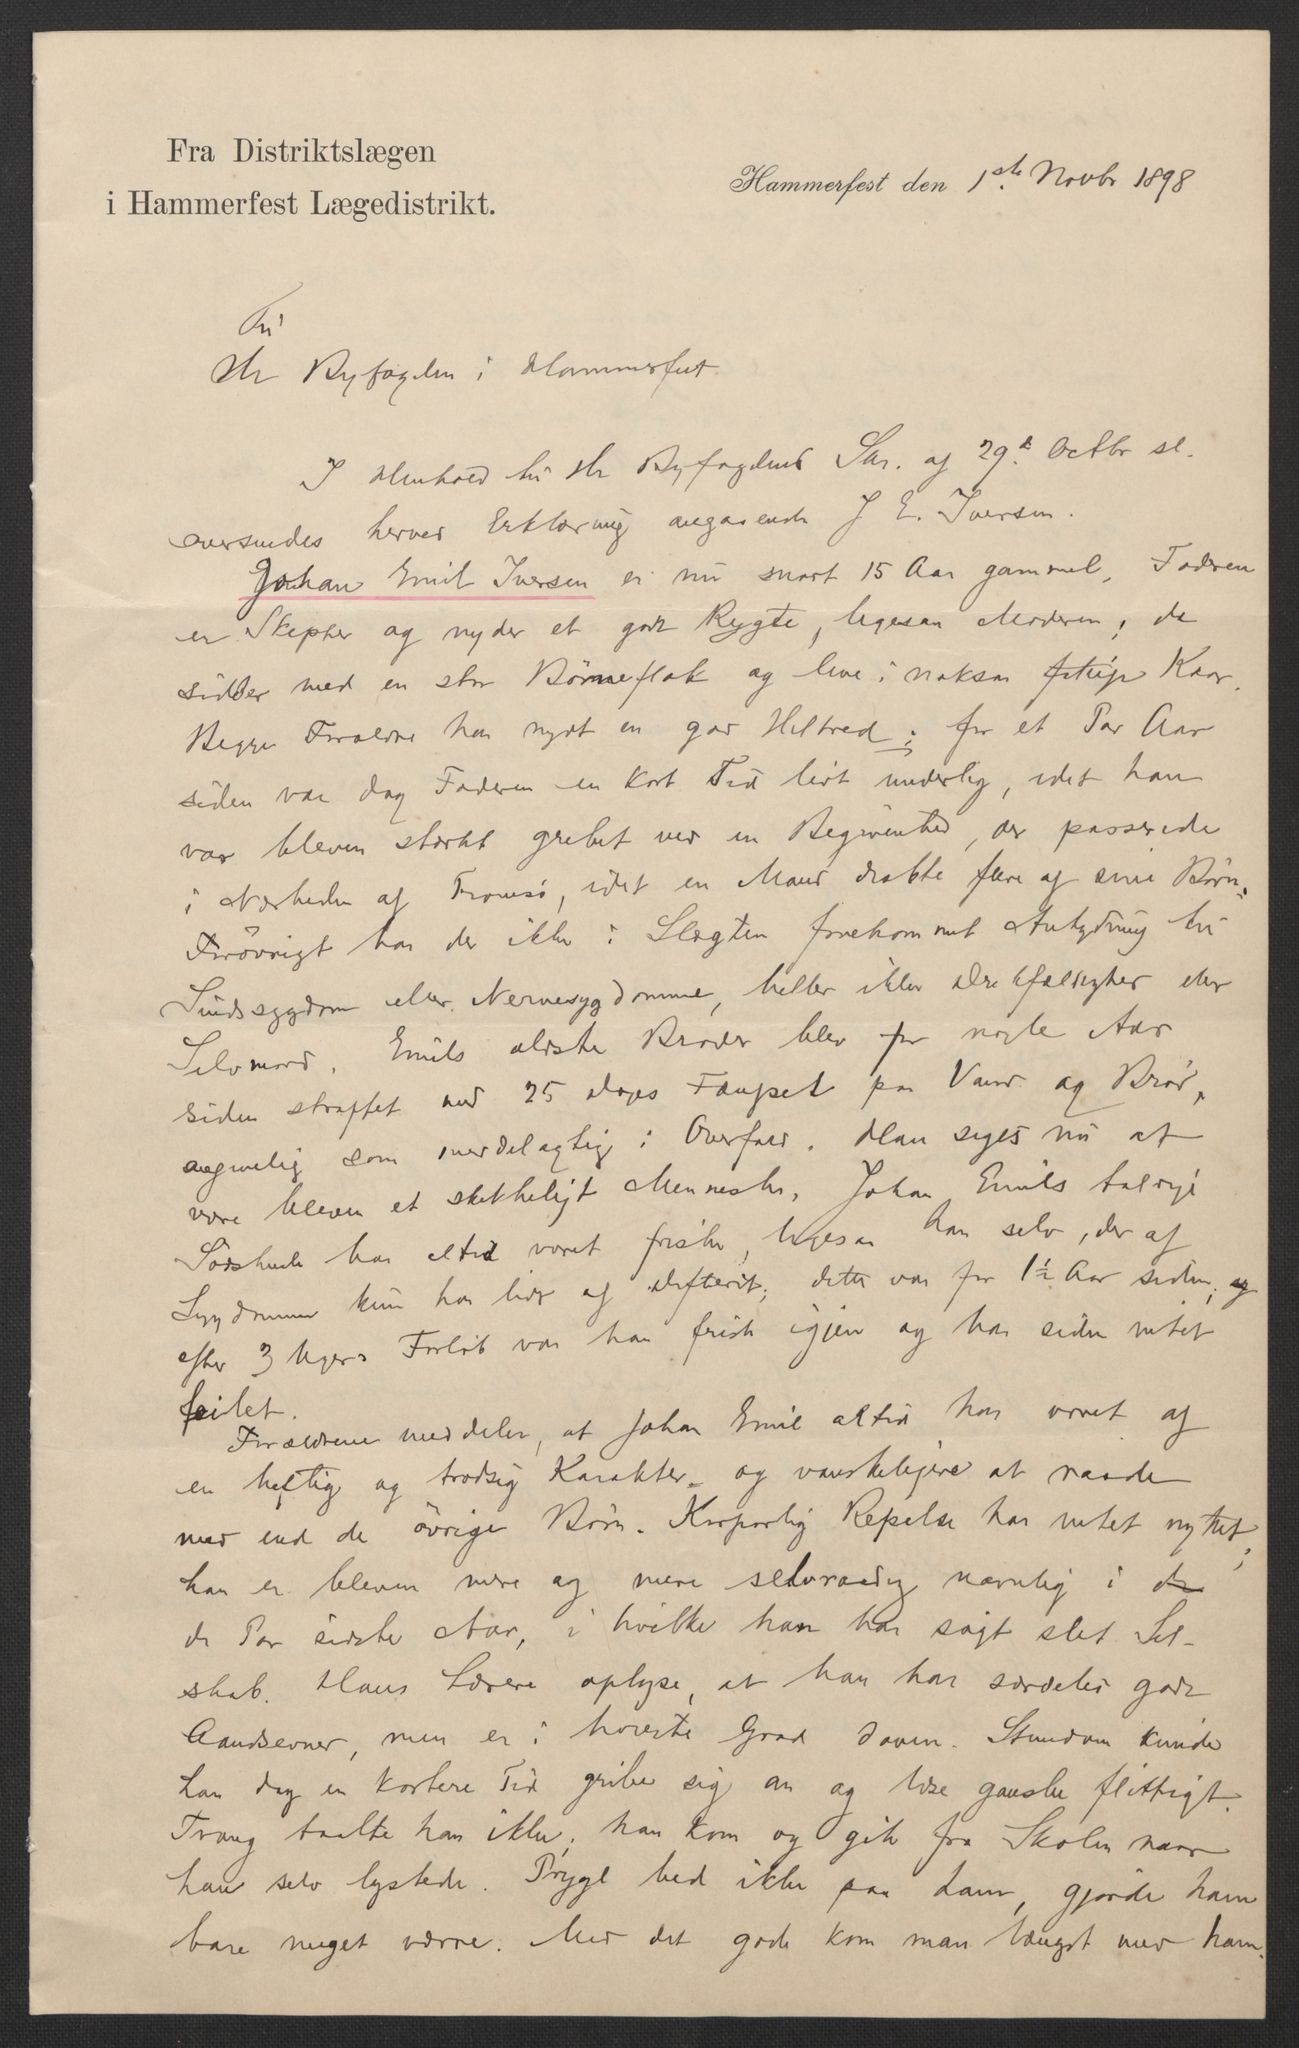 Fra Distriktslægen
i Hammerfest Lægedistrikt.
Hammerfest den 1ste Novbr 1898
Til
Hr Byfogden i Hammerfest.
I Henhold til Hr Byfogdens Skr. af 29de Octbr sl.
oversendes herved Erklæring angaaende J E. Iversen.
Johan Emil Iversen er nu snart 15 Aar gammel, Faderen
er Skipper og nyder et godt Rygte, ligesaa Moderen; de
sidder med en stor Börneflok og leve i noksaa fattige Kaar.
Begge Forældre har nydt en god Helbred; for et Par Aar
siden var dog Faderen en kort Tid lidt underlig, idet han
var bleven stærkt grebet ved en Begivenhed, der passerede
i Nærheden af Tromsö, idet en Mand dræbte flere af sine Börn.
Forövrigt har der ikke i Slægten forekommet Antydning til
Sindssygdom eller Nervesygdomme, heller ikke Drikfældighed eller
Selvmord. Emils ældste Broder blev for nogle Aar
siden straffet med 25 Dages Fængsel paa Vand og Bröd,
angivelig som meddelagtig i Overfald. Han siges nu at
være bleven et skikkeligt Menneske. Johan Emils talrige
Södskende har altid været friske, ligesaa han selv, der af
Sygdomme kun har lidt af Difterit; dette var for 1½ Aar siden, og
efter 3 Ugers Forløb var han frisk igjen og har siden intet
feilet.
Forældrene meddeler, at Johan Emil altid har været af
en heftig og trodsig Karakter og vanskeligere at raade
med end de övrige Börn. Korporlig Revselse har intet nyttet;
han er bleven mere og mere selvraadig navnlig i de
de Par sidste Aar, i hvilke han har sögt slet Sel-
skab. Hans Lærere oplyse, at han har særdeles gode
Aandsevner, men er i höieste Grad doven. Stundom kunde
han dog en kortere Tid gribe sig an og læse ganske flittigt.
Tvang taalte han ikke; han kom og gik fra Skolen naar
han selv lystede. Prygl bed ikke paa ham, gjorde ham
bare meget værre. Med det gode kom man længst med ham.